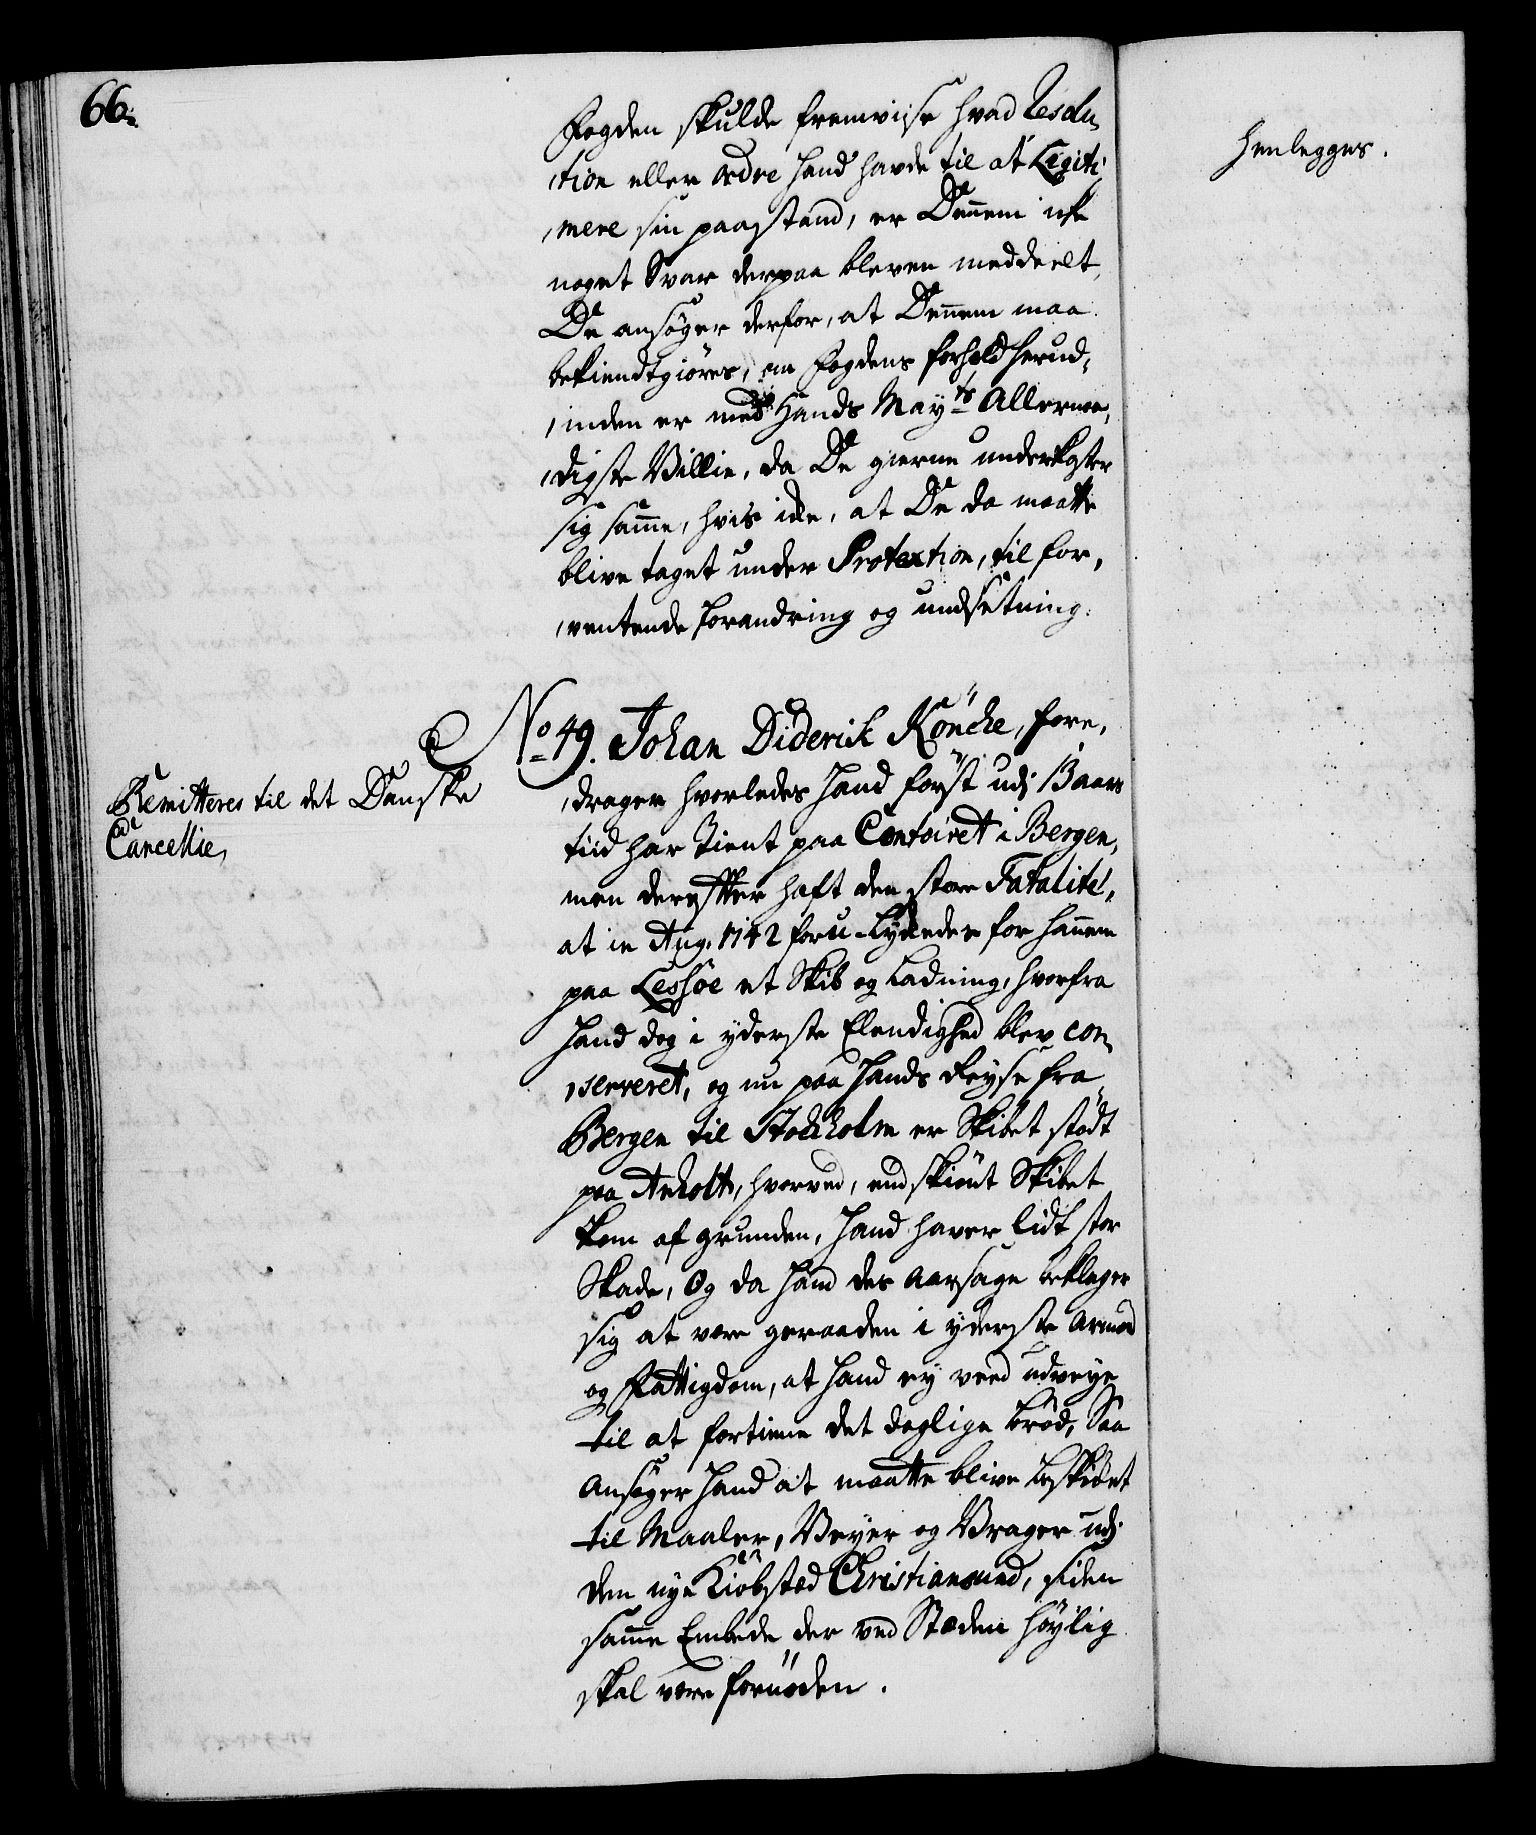 66.
Fogden skulde fremviise hvad Resolu,
,tion eller ordre hand havde til at Legiti,
,mere sin paastand, er Dennem icke
noget Svar derpaa bleven meddeelt,
De ansöger derfor, at Dennem maa
bekiendtgiöres, om Fogdens forhold herud,
,inden er med Hands May:ts Allernaa,
,digste Villie, da De gierne underkaster
sig samme, hvis icke, at De da maatte
blive taget under Protection, til for,
,ventende forandring og undsetning.
No 49. Johan Diderich Köncke, fore,
,drager hvorledes hand först udj 13 aars
tiid har tient paa Contoiret i Bergen,
men derefter haft den store Fatalité,
at in Aug. 1742 forulyckedes for hannem
paa Lessöe et Skib og Ladning, hvorfra
hand dog i yderste Elendighed blev con,
,serveret, og nu paa hands Reyse fra
Bergen til Stockholm er Skibet stödt
paa Anholt, hvorved, endskiönt Skibet
kom af grunden, hand haver lidt stor
Skade, Og da hand des aarsage beklager
sig at være geraaden i yderste Armod
og Fattigdom, at hand ey veed udveye
til at fortiene det daglige bröd, Saa
Ansöger hand at maatte blive beskicket
til Maaler, Veyer og Vrager udj
den nye Kiöbstæd Christiansund, siden
samme Embede der ved Stæden höylig
skal være fornöden.
Remitteres til det Danske
Cancellie,
Henlegges.